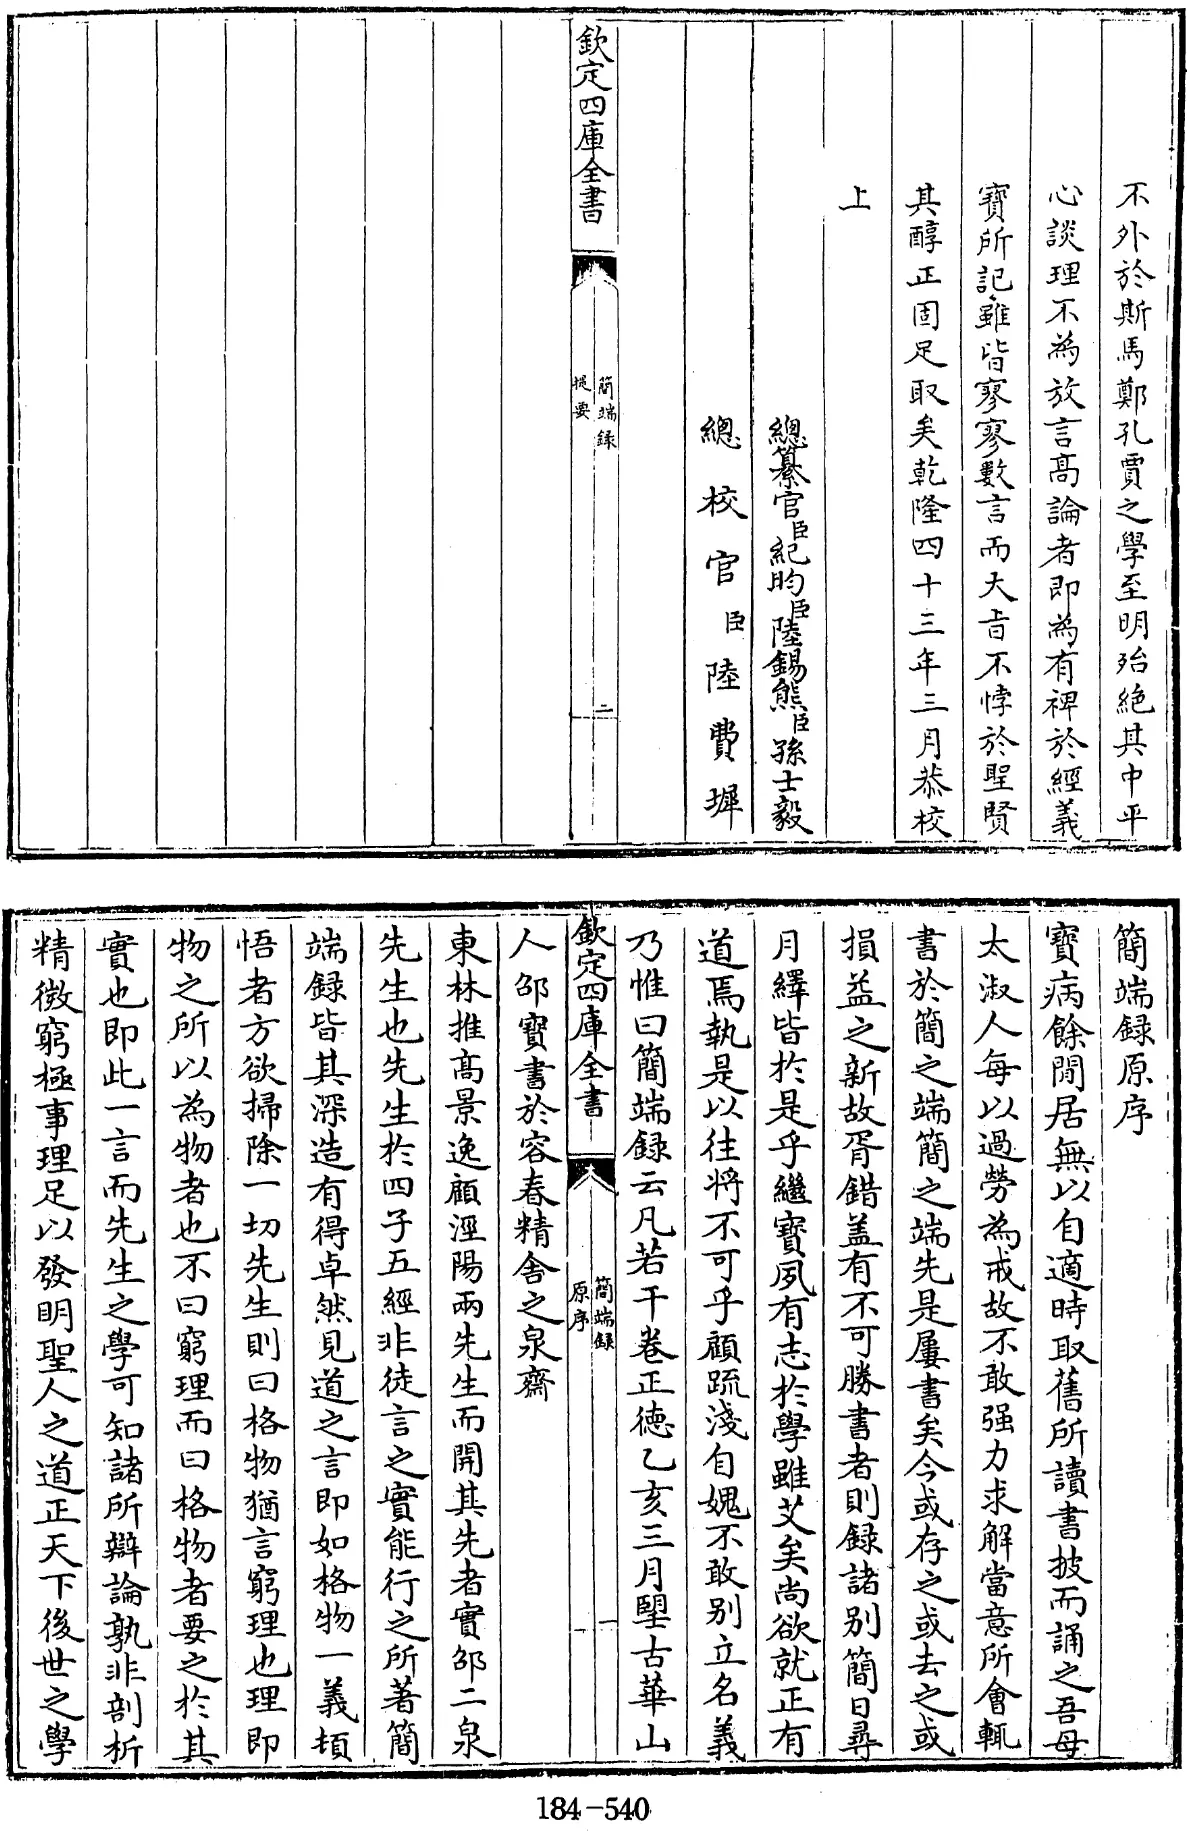 不外於斯馬鄭孔賈之學至明殆絶其中平
心談理不為放言髙論者即為有裨於經義
寳所記雖皆寥寥數言而大㫖不悖於聖賢
其醇正固足取矣乾隆四十三年三月恭校
上
總纂官臣紀昀臣陸錫熊臣孫士毅
總校官臣陸費墀
欽定四庫全書
簡端録
提要
二
簡端録原序
寳病餘閒居無以自適時取舊所讀書披而誦之吾母
太淑人每以過勞為戒故不敢强力求解當意所會輒
書於簡之端簡之端先是屢書矣今或存之或去之或
損益之新故胥錯盖有不可勝書者則録諸别簡日尋
月繹皆於是乎繼寳夙有志於學雖艾矣尚欲就正有
道焉執是以往將不可乎顧疏淺自媿不敢别立名義
乃惟曰簡端録云凡若干卷正徳乙亥三月朢古華山
欽定四庫全書
簡端録
原序
一
人邵寳書於容春精舎之泉齋
東林推髙景逸顧涇陽兩先生而開其先者實邵二泉
先生也先生於四子五經非徒言之實能行之所著簡
端録皆其深造有得卓然見道之言即如格物一義頓
悟者方欲掃除一切先生則曰格物猶言窮理也理即
物之所以為物者也不曰窮理而曰格物者要之於其
實也即此一言而先生之學可知諸所辯論孰非剖析
精微窮極事理足以發明聖人之道正天下後世之學
184-540